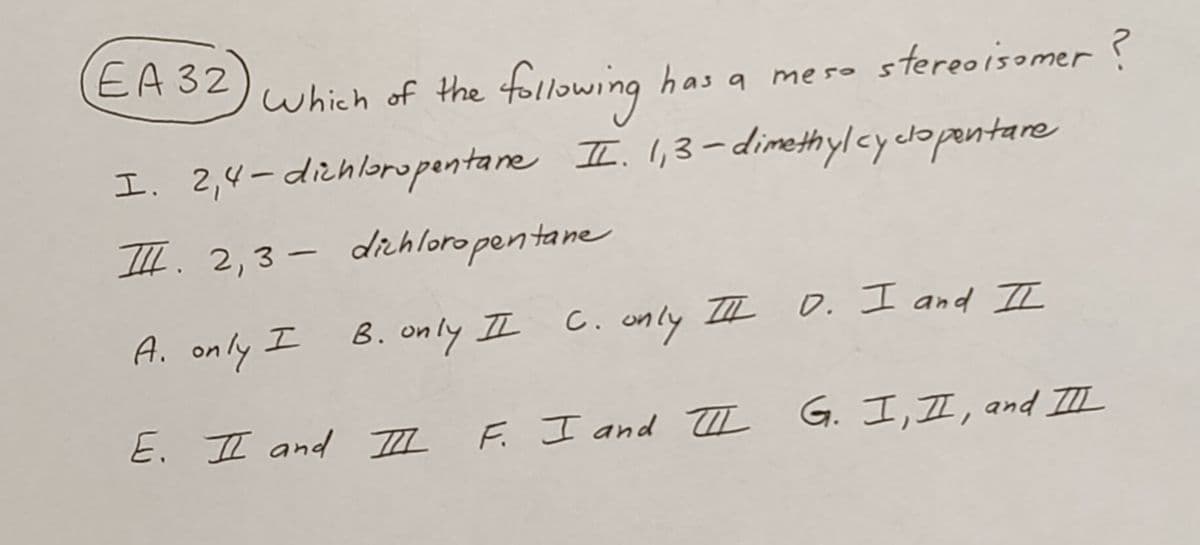 EA 32) Which of the following has a meso stereoisomer ?
I. 2,4-dichloropentane II. 1,3-dimethylcyclopentane
III. 2,3- dichloropentane
A. only I B. only II C. only III D. I and II
E. II and III F. I and III G. I, II, and III